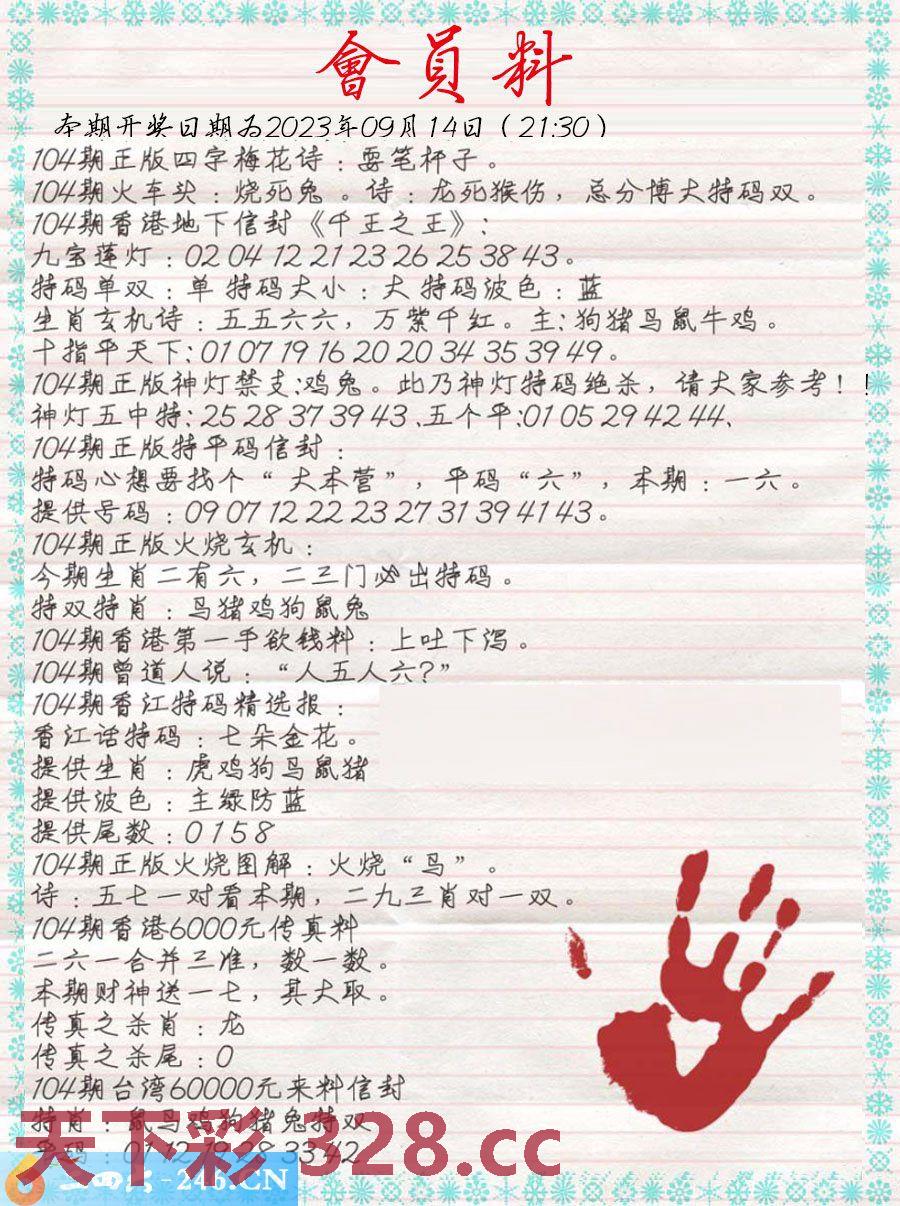 會員料
本期开奖日期为2023年09月14日（21:30）
104期正版四字梅花诗：耍笔杆子。
104期火车头：烧死兔。诗：龙死猴伤，总分博大特码双。
104期香港地下信封《千王之王》：
九宝莲灯：02 04 12 21 23 26 25 38 43。
特码单双：单 特码大小：大 特码波色：蓝
生肖玄机诗：五五六六，万紫千红。主：狗猪马鼠牛鸡。
十指平天下：01 07 19 16 20 20 34 35 39 49。
104期正版神灯禁支：鸡兔。此乃神灯特码绝杀，请大家参考！！
神灯五中特：25 28 37 39 43、五个平：01 05 29 42 44、
104期正版特平码信封：
特码心想要找个“大本营”，平码“六”，本期：一六。
提供号码：09 07 12 22 23 27 31 39 41 43。
104期正版火烧玄机：
今期生肖二有六，二三门必出特码。
特双特肖：马猪鸡狗鼠兔
104期香港第一手欲钱料：上吐下泻。
104期曾道人说：“人五人六？”
104期香江特码精选报：
香江话特码：七朵金花。
提供生肖：虎鸡狗马鼠猪
提供波色：主绿防蓝
提供尾数：0 1 5 8
104期正版火烧图解：火烧“马”。
诗：五七一对看本期，二九三肖对一双。
104期香港6000元传真料
二六一合并三准，数一数。
本期财神送一七，其大取。
传真之杀肖：龙
传真之杀尾：0
104期台湾60000元来料信封
特肖：鼠马鸡狗猪兔特双
平码：01 12 19 28 33 42
天下彩 328.cc
二四六-246.CN